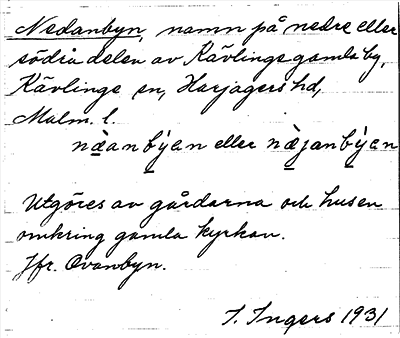 Nedanbyn, namn på nedre eller
södra delen av Kävlinge gamla by,
Kävlinge sn, Harjagers hd,
Malm. l.
næ̀anbýen eller næ̀janbýen
Utgöres av gårdarna och husen
omkring gamla kyrkan.
Jfr. Ovanbyn.
I. Ingers 1931